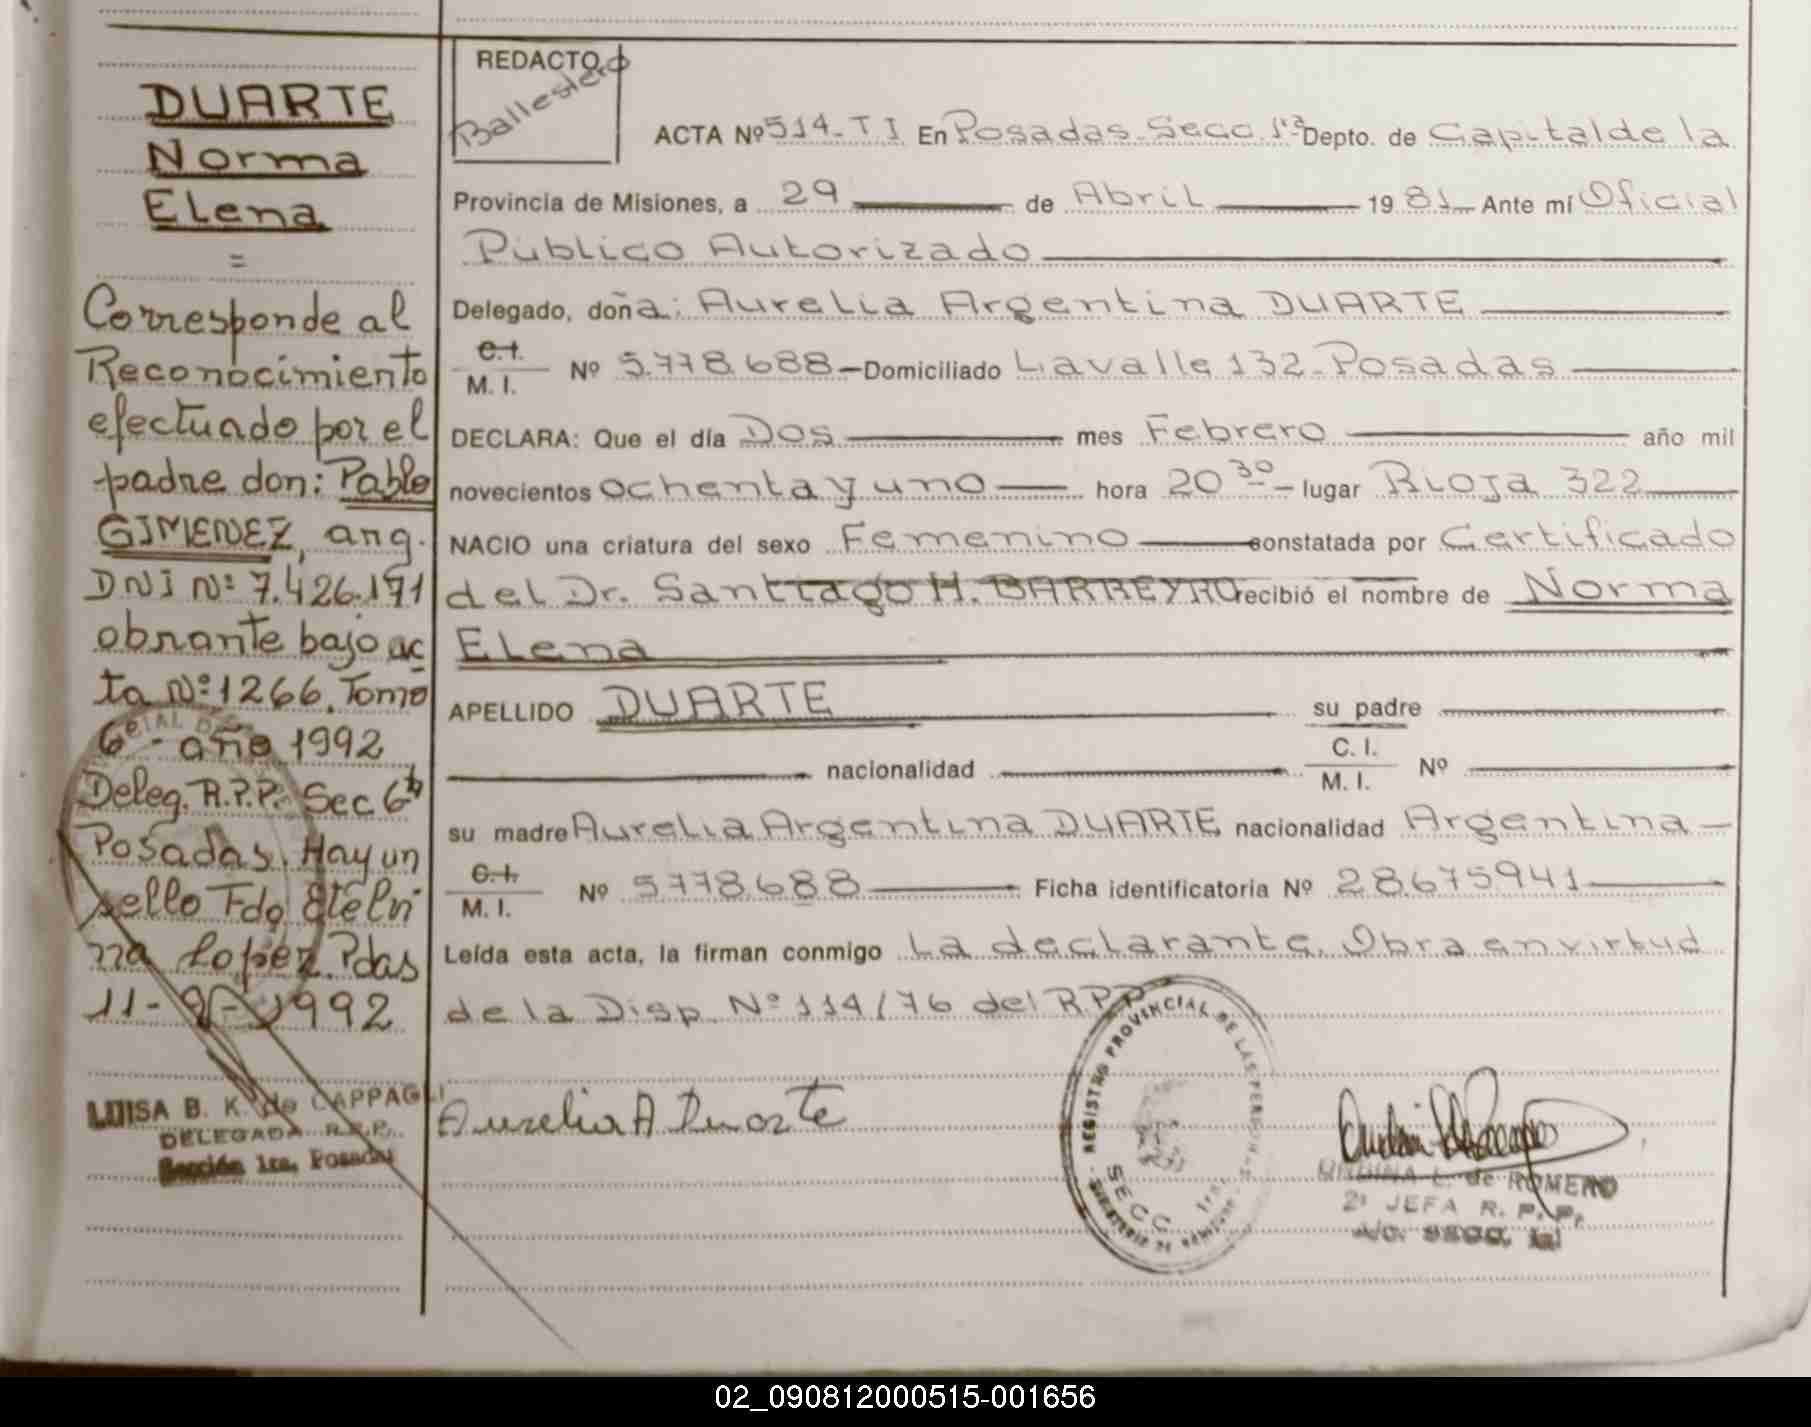 DUARTE
Norma
Elena
=
Corresponde al
Reconocimiento
efectuado por el
padre don: Pablo
GIMENEZ, arg.
DNI Nº 7.426.171
obrante bajo ac
ta Nº 1266. Tomo
6º - año 1992
Deleg. R.P.P. Sec 6ta
Posadas. Hay un
sello Fdo Etelvi
na Lopez. Pdas
11-9-1992
LUISA B. K. de CAPPAGLI
DELEGADA R.P.P.
Sección 1ra. Posadas
REDACTO
Ballestero
ACTA Nº 514-T I En Posadas Secc 1ra Depto. de Capital de la
Provincia de Misiones, a 29 de Abril 1981 Ante mí Oficial
Público Autorizado
Delegado, doña: Aurelia Argentina DUARTE
C.I. M. I. Nº 5.778.688 Domiciliado Lavalle 132-Posadas
DECLARA: Que el día Dos mes Febrero año mil
novecientos ochenta y uno hora 20 30 lugar Rioja 322
NACIO una criatura del sexo Femenino constatada por Certificado
del Dr. Santiago H. BARREYRO recibió el nombre de Norma
Elena
APELLIDO DUARTE su padre
nacionalidad C. I. M. I. Nº
su madre Aurelia Argentina DUARTE nacionalidad Argentina
C.I. M. I. Nº 5778.688 Ficha identificatoria Nº 28675941
Leída esta acta, la firman conmigo La declarante. Obra en virtud
de la Disp. Nº 114/76 del RPP
Aurelia A Duarte
REGISTRO PROVINCIAL DE LAS PERSONAS
SECC 1ra.
L. de ROMERO
2ª JEFA R. P. P.
A/C. SECC. 1ra
02_090812000515-001656